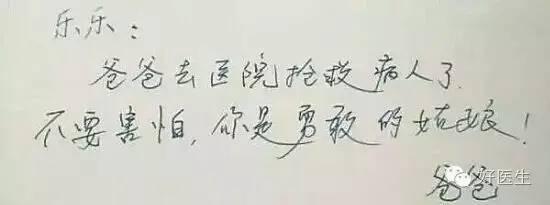 乐乐：
爸爸去医院抢救病人了.
不要害怕,你是勇敢的姑娘!
爸爸
好医生